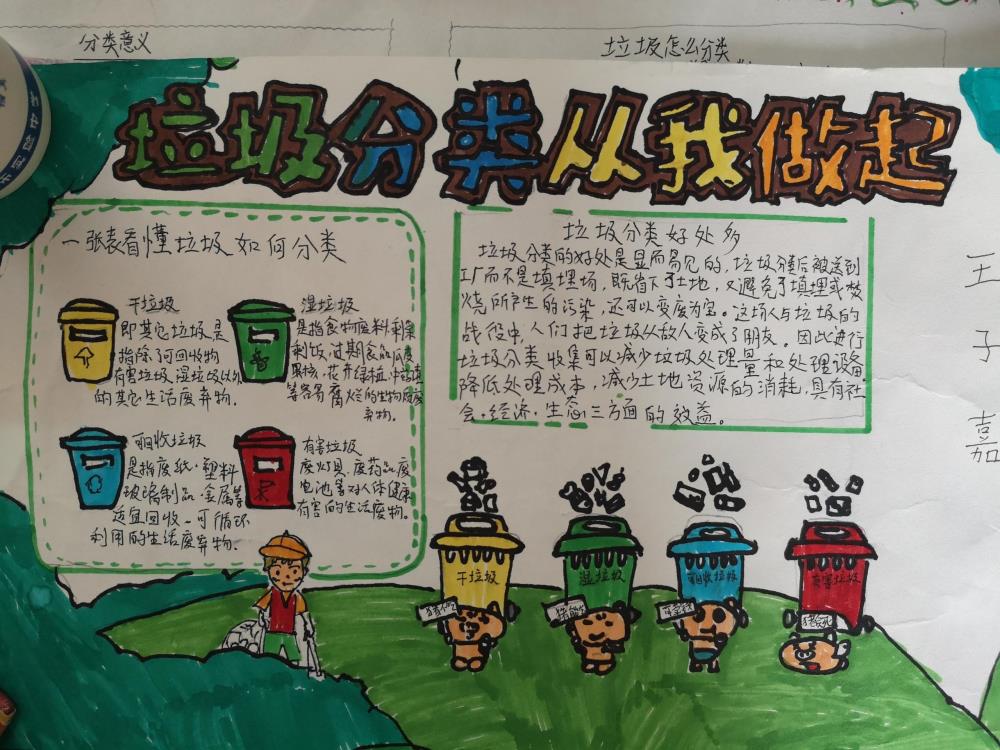 分类意义
垃圾怎么分类
垃圾分类从我做起
一张表看懂垃圾如何分类
干垃圾
即其它垃圾是
指除了可回收物
有害垃圾 湿垃圾以外
的其它生活废弃物.
湿垃圾
是指食物废料剩菜
剩饭,过期食品瓜皮
果核,花卉绿植,中药渣
等容易腐烂的生物质废
弃物.
可回收垃圾
是指废纸·塑料
玻璃制品·金属等
适宜回收、可循环
利用的生活废弃物.
有害垃圾
废灯具,废药品废
电池等对人体健康
有害的生活废物。
垃圾分类好处多
垃圾分类的好处是显而易见的,垃圾分类后被送到
工厂而不是填埋场,既省下了土地,又避免了填埋或焚
烧所产生的污染,还可以变废为宝。这场人与垃圾的
战役中,人们把垃圾从敌人变成了朋友。因此进行
垃圾分类收集可以减少垃圾处理量和处理设备
降低处理成本,减少土地资源的消耗,具有社
会·经济·生态三方面的效益。
王子嘉
干垃圾
湿垃圾
可回收垃圾
有害垃圾